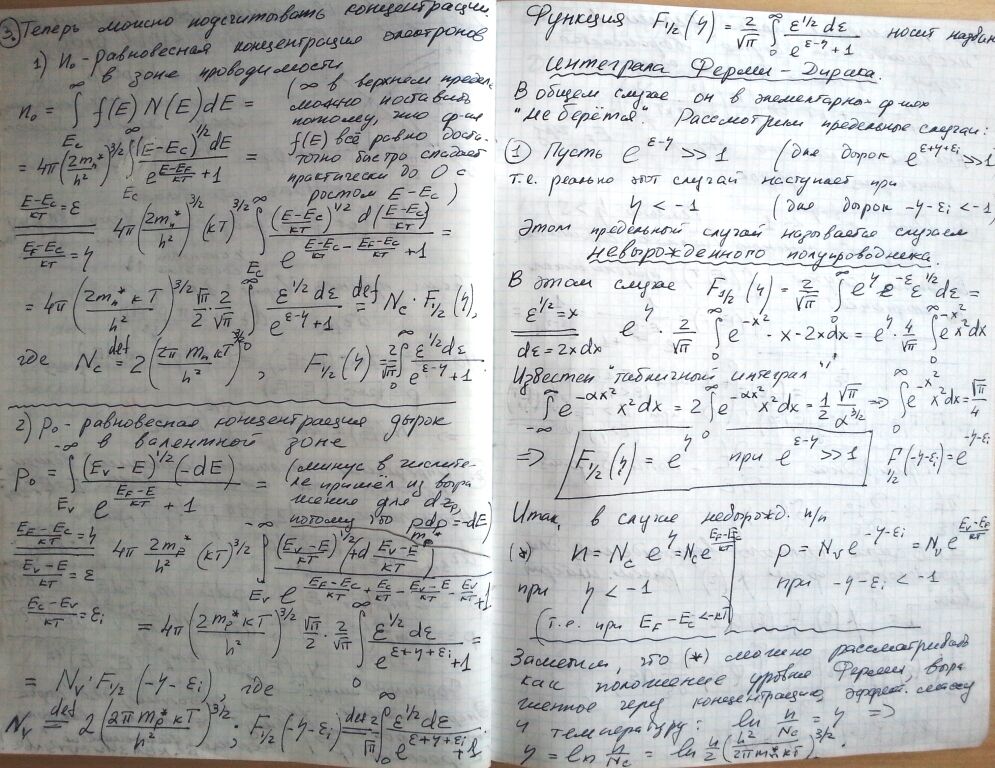 3. Теперь можно подсчитывать концентрации
1) n₀ - равновесная концентрация электронов
в зоне проводимости
n₀ = ∫_{E_c}^{∞} f(E) N(E) dE = (∞ в верхнем пределе
можно поставить
потому, что ф-ия
f(E) всё равно доста-
точно быстро спадает
практически до 0 с
ростом E - E_c)
= 4π (2m_n*/h²)^{3/2} ∫_{E_c}^{∞} (E-E_c)^{1/2} dE / (e^{(E-E_F)/кТ} + 1) =
(E-E_c)/кТ = ε
(E_F-E_c)/кТ = η
4π (2m_n*/h²)^{3/2} (кТ)^{3/2} ∫_{E_c}^{∞} ((E-E_c)/кТ)^{1/2} d((E-E_c)/кТ) / (e^{(E-E_c)/кТ - (E_F-E_c)/кТ} + 1) =
= 4π (2m_n* кТ/h²)^{3/2} √π/2 · 2/√π ∫_{0}^{∞} ε^{1/2} dε / (e^{ε-η} + 1) =^{def} N_c · F_{1/2}(η),
где N_c =^{def} 2 (2π m_n кТ/h²)^{3/2}, F_{1/2}(η) = 2/√π ∫_{0}^{∞} ε^{1/2} dε / (e^{ε-η} + 1).
2) p₀ - равновесная концентрация дырок
в валентной зоне
p₀ = ∫_{E_v}^{-∞} (E_v - E)^{1/2} (-dE) / (e^{(E_F-E)/кТ} + 1) = (минус в числите-
ле пришёл из выра-
жения для dz_p,
потому что pdp/m_p* = -dE)
(E_F-E_c)/кТ = η
(E_v-E)/кТ = ε
(E_c-E_v)/кТ = ε_i
4π 2m_p*/h² (кТ)^{3/2} ∫_{E_v}^{-∞} ((E_v-E)/кТ)^{1/2} (+d (E_v-E)/кТ) / (e^{(E_F-E_c)/кТ + E_c/кТ - E_v/кТ - E/кТ - E_v/кТ} + 1)
= 4π (2m_p* кТ/h²)^{3/2} √π/2 · 2/√π ∫_{0}^{∞} ε^{1/2} dε / (e^{ε+η+ε_i} + 1) =
= N_v · F_{1/2}(-η - ε_i), где
N_v =^{def} 2 (2π m_p* кТ/h²)^{3/2}; F_{1/2}(-η-ε_i) =^{def} 2/√π ∫_{0}^{∞} ε^{1/2} dε / (e^{ε+η+ε_i} + 1)
Функция F_{1/2}(η) = 2/√π ∫_{0}^{∞} ε^{1/2} dε / (e^{ε-η} + 1) носит назван
интеграла Ферми - Дирака.
В общем случае он в элементарн. ф-иях
"не берётся". Рассмотрим предельные случаи:
1 Пусть e^{ε-η} >> 1 (для дырок e^{ε+η+ε_i} >> 1
т.е. реально этот случай наступает при
η < -1 (для дырок -η-ε_i < -1)
Этом предельный случай называется случаем
невырожденного полупроводника.
В этом случае F_{1/2}(η) = 2/√π ∫_{0}^{∞} e^{η} e^{-ε} ε^{1/2} dε =
ε^{1/2} = x
dε = 2xdx
e^{η} · 2/√π ∫_{0}^{∞} e^{-x²} · x · 2xdx = e^{η} · 4/√π ∫_{0}^{∞} e^{-x²} x² dx
Известен "табличный интеграл":
∫_{-∞}^{∞} e^{-αx²} x² dx = 2 ∫_{0}^{∞} e^{-αx²} x² dx = 1/2 √π/α^{3/2} ⇒ ∫_{0}^{∞} e^{-x²} x² dx = √π/4
⇒ F_{1/2}(η) = e^{η} при e^{ε-η} >> 1 F_{1/2}(-η-ε_i) = e^{-η-ε_i}
Итак, в случае невырожд. п/п
(*) n = N_c e^{η} = N_c e^{(E_F-E_c)/кТ} p = N_v e^{-η-ε_i} = N_v e^{(E_v-E_F)/кТ}
при η < -1 при -η-ε_i < -1
(т.е. при E_F - E_c < -кТ)
Заметим, что (*) можно рассматривать
как положение уровня Ферми, выра-
женное через концентрацию, эффект. массу
и температуру: ln n/N_c = η ⇒
η = ln n/N_c = ln n/2 (h²/2πm_n*кТ)^{3/2}.